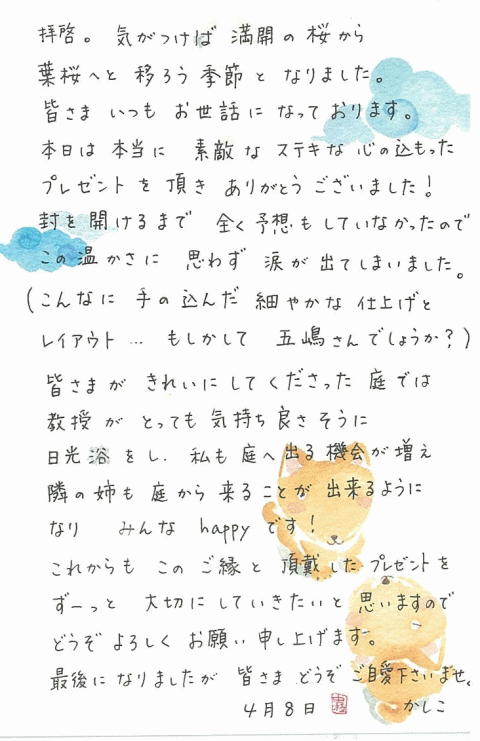 拝啓。気がつけば 満開の桜から
葉桜へと 移ろう季節と なりました。
皆さま いつも お世話に なって おります。
本日は 本当に 素敵な ステキな 心の込もった
プレゼントを 頂き ありがとう ございました!
封を 開けるまで 全く予想も していなかったので
この温かさに 思わず 涙が 出てしまいました。
(こんなに 手の込んだ 細やかな 仕上げと
レイアウト… もしかして 五嶋さんでしょうか?)
皆さまが きれいにしてくださった 庭では
教授が とっても 気持ち良さそうに
日光浴をし、私も 庭へ出る 機会が増え
隣の姉も 庭から 来ることが 出来るように
なり みんな happyです!
これからも このご縁と 頂戴した プレゼントを
ずーっと 大切に していきたいと 思いますので
どうぞ よろしく お願い 申し上げます。
最後に なりましたが 皆さま どうぞ ご自愛下さいませ。
4月8日 かしこ